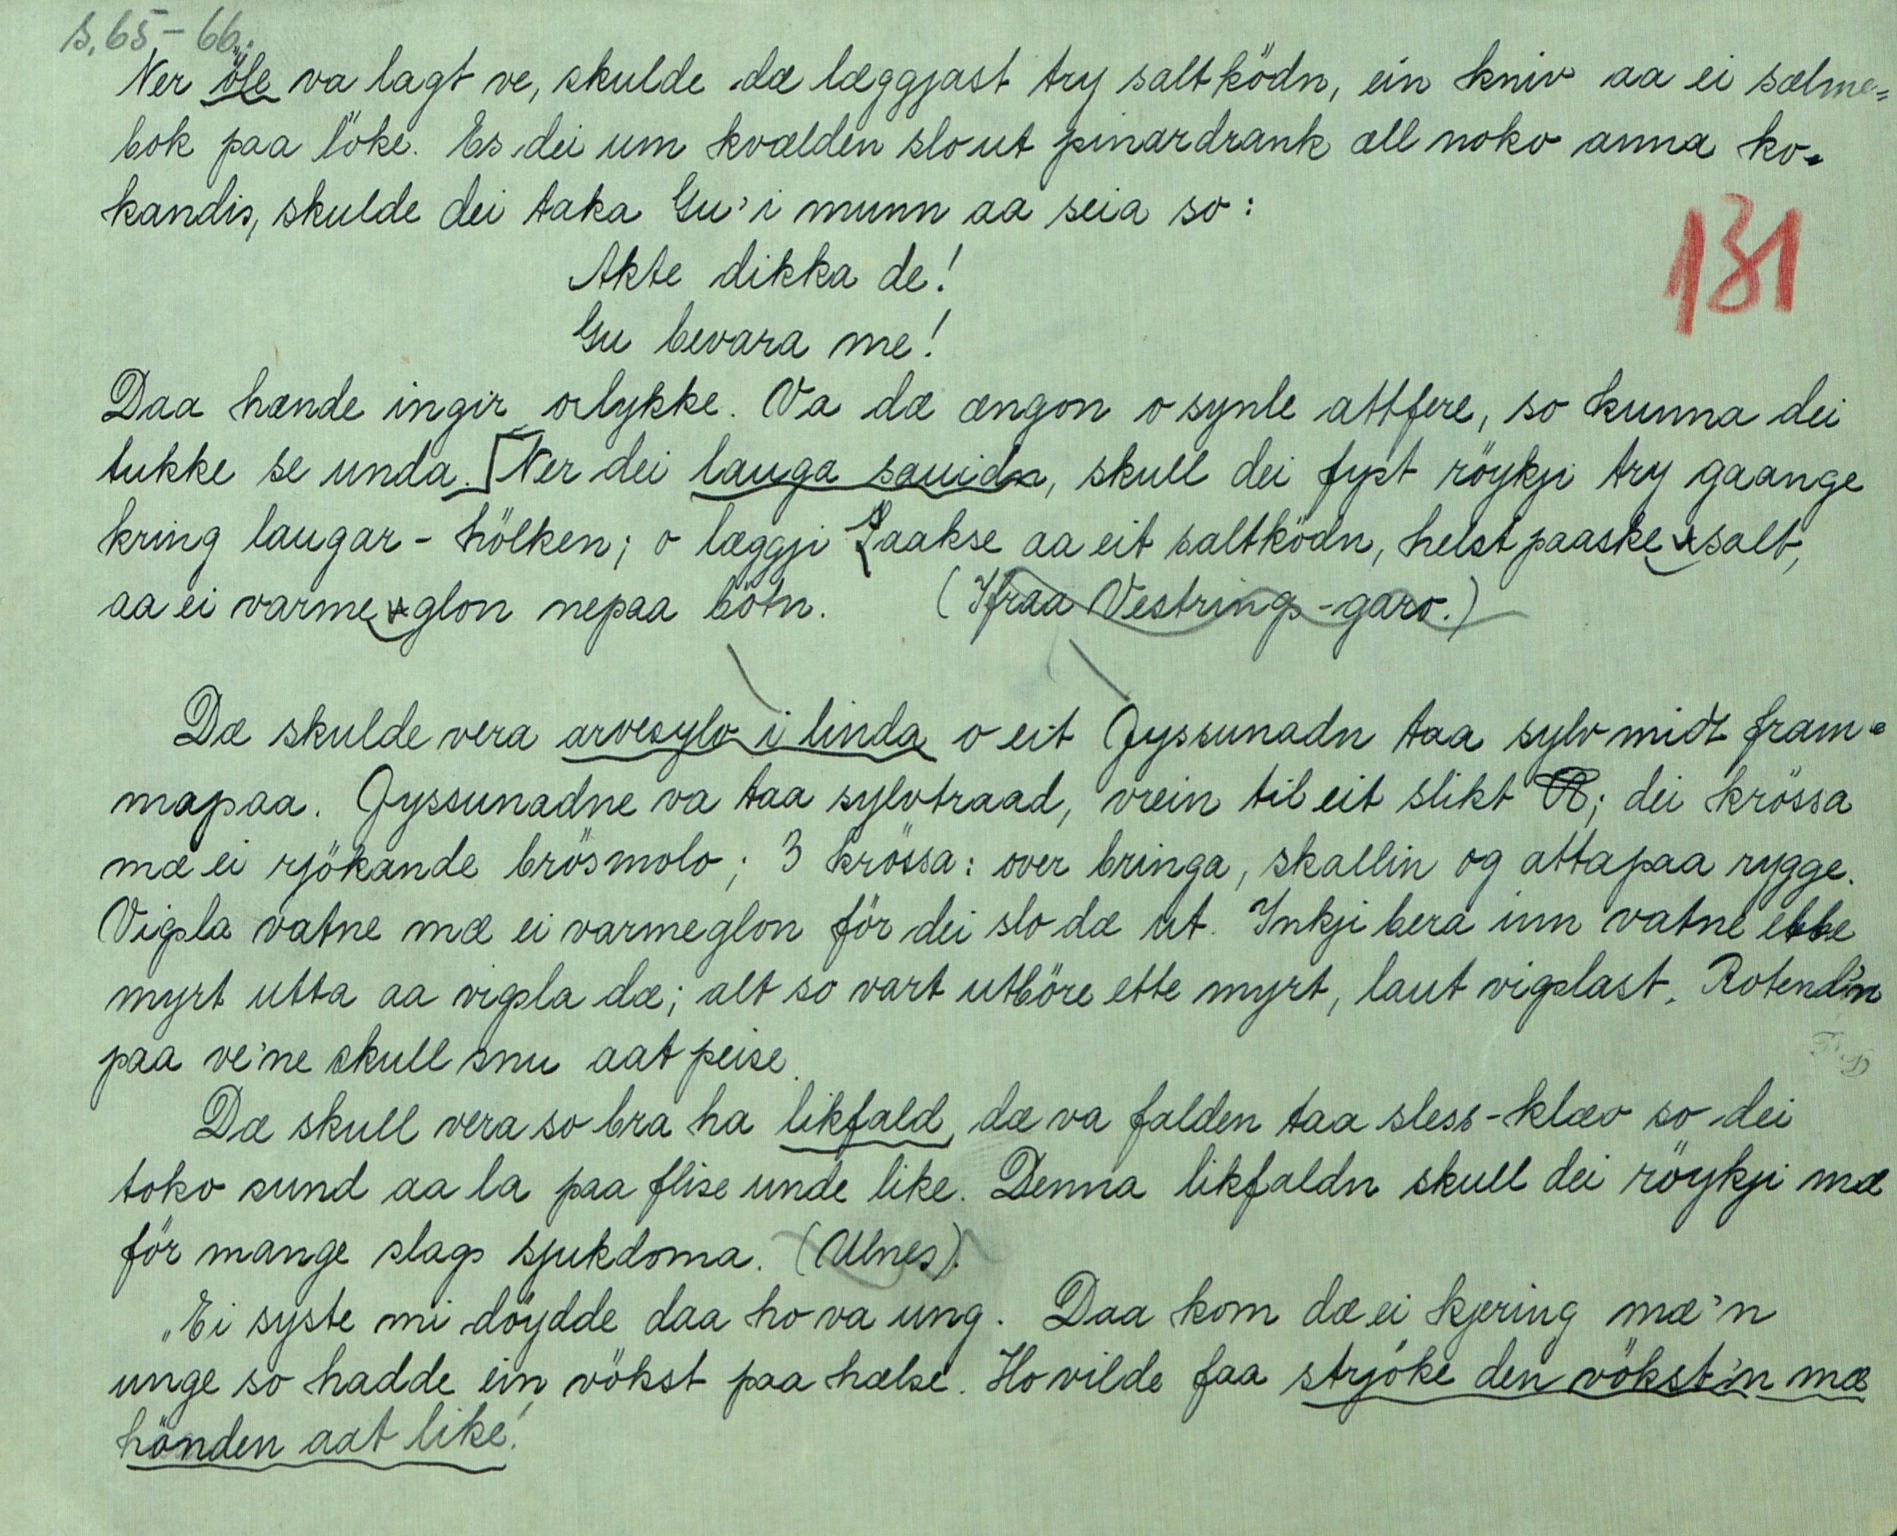 s. 65-66.
Ner öle va lagt ve, skulde dæ læggjast try saltködn, ein kniv aa ei sælme=
bok paa löke. Es dei um kvælden slo ut pinardrank æll noko anna ko-
kandis, skulde dei taka Gu' i munn aa seia so:
Akte dikka de!
Gu bevara me!
131
Daa hænde ingir orlykke. Va dæ ængon osynle attfere, so kunna dei
tukke se unda. [Ner dei lauga sauidn, skull dei fyst röykji try gaange
kring laugar-hölken; o læggji saakse aa eit saltködn, helst paaske salt,
aa ei varme glon nepaa bötn. (Ifraa Vestrings-garo.)
Dæ skulde vera arvesylv i linda o eit Jyssunadn taa sylv midt fram-
mapaa. Jyssunadne va taa sylvtraad, vrein til eit slikt ; dei krössa
mæ ei rjökande brösmolo; 3 krössa: over bringa, skallin og attapaa rygge.
Vigsla vatne mæ ei varmeglon för dei slo dæ ut. Inkji bera inn vatne ette
myrt utta aa vigsla dæ; alt so vart utböre ette myrt, laut vigslast. Rotend'n
paa ve'ne skull snu aat peise.
Dæ skull vera so bra ha likfald, dæ va falden taa sless-klæo so dei
toko sund aa la paa flise unde like. Denna likfaldn skull dei röykji mæ
för mange slags sjukdoma. (Ulnes).
"Ei syste mi döydde daa ho va ung. Daa kom dæ ei kjering mæ'n
unge so hadde ein vökst paa hælse. Ho vilde faa strjóke den vökst'n mæ
hönden aat like!